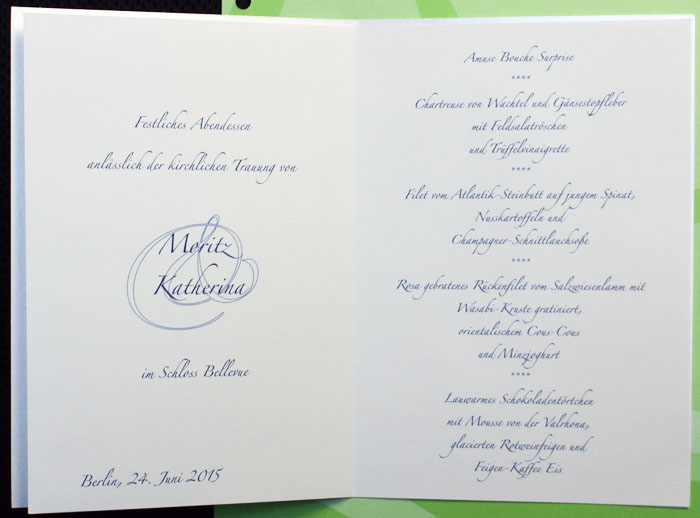 Festliches Abendessen
anlässlich der kirchlichen Trauung von
Moritz
&
Katherina
im Schloss Bellevue
Berlin, 24. Juni 2015
Amuse Bouche Surprise
****
Chartreuse von Wachtel und Gänsestopfleber
mit Feldsalatröschen
und Trüffelvinaigrette
****
Filet vom Atlantik-Steinbutt auf jungem Spinat,
Nusskartoffeln und
Champagner-Schnittlauchsoße
****
Rosa gebratenes Rückenfilet vom Salzwiesenlamm mit
Wasabi-Kruste gratiniert,
orientalischem Cous-Cous
und Minzjoghurt
****
Lauwarmes Schokoladentörtchen
mit Mousse von der Valrhona,
glacierten Rotweinfeigen und
Feigen-Kaffee Eis